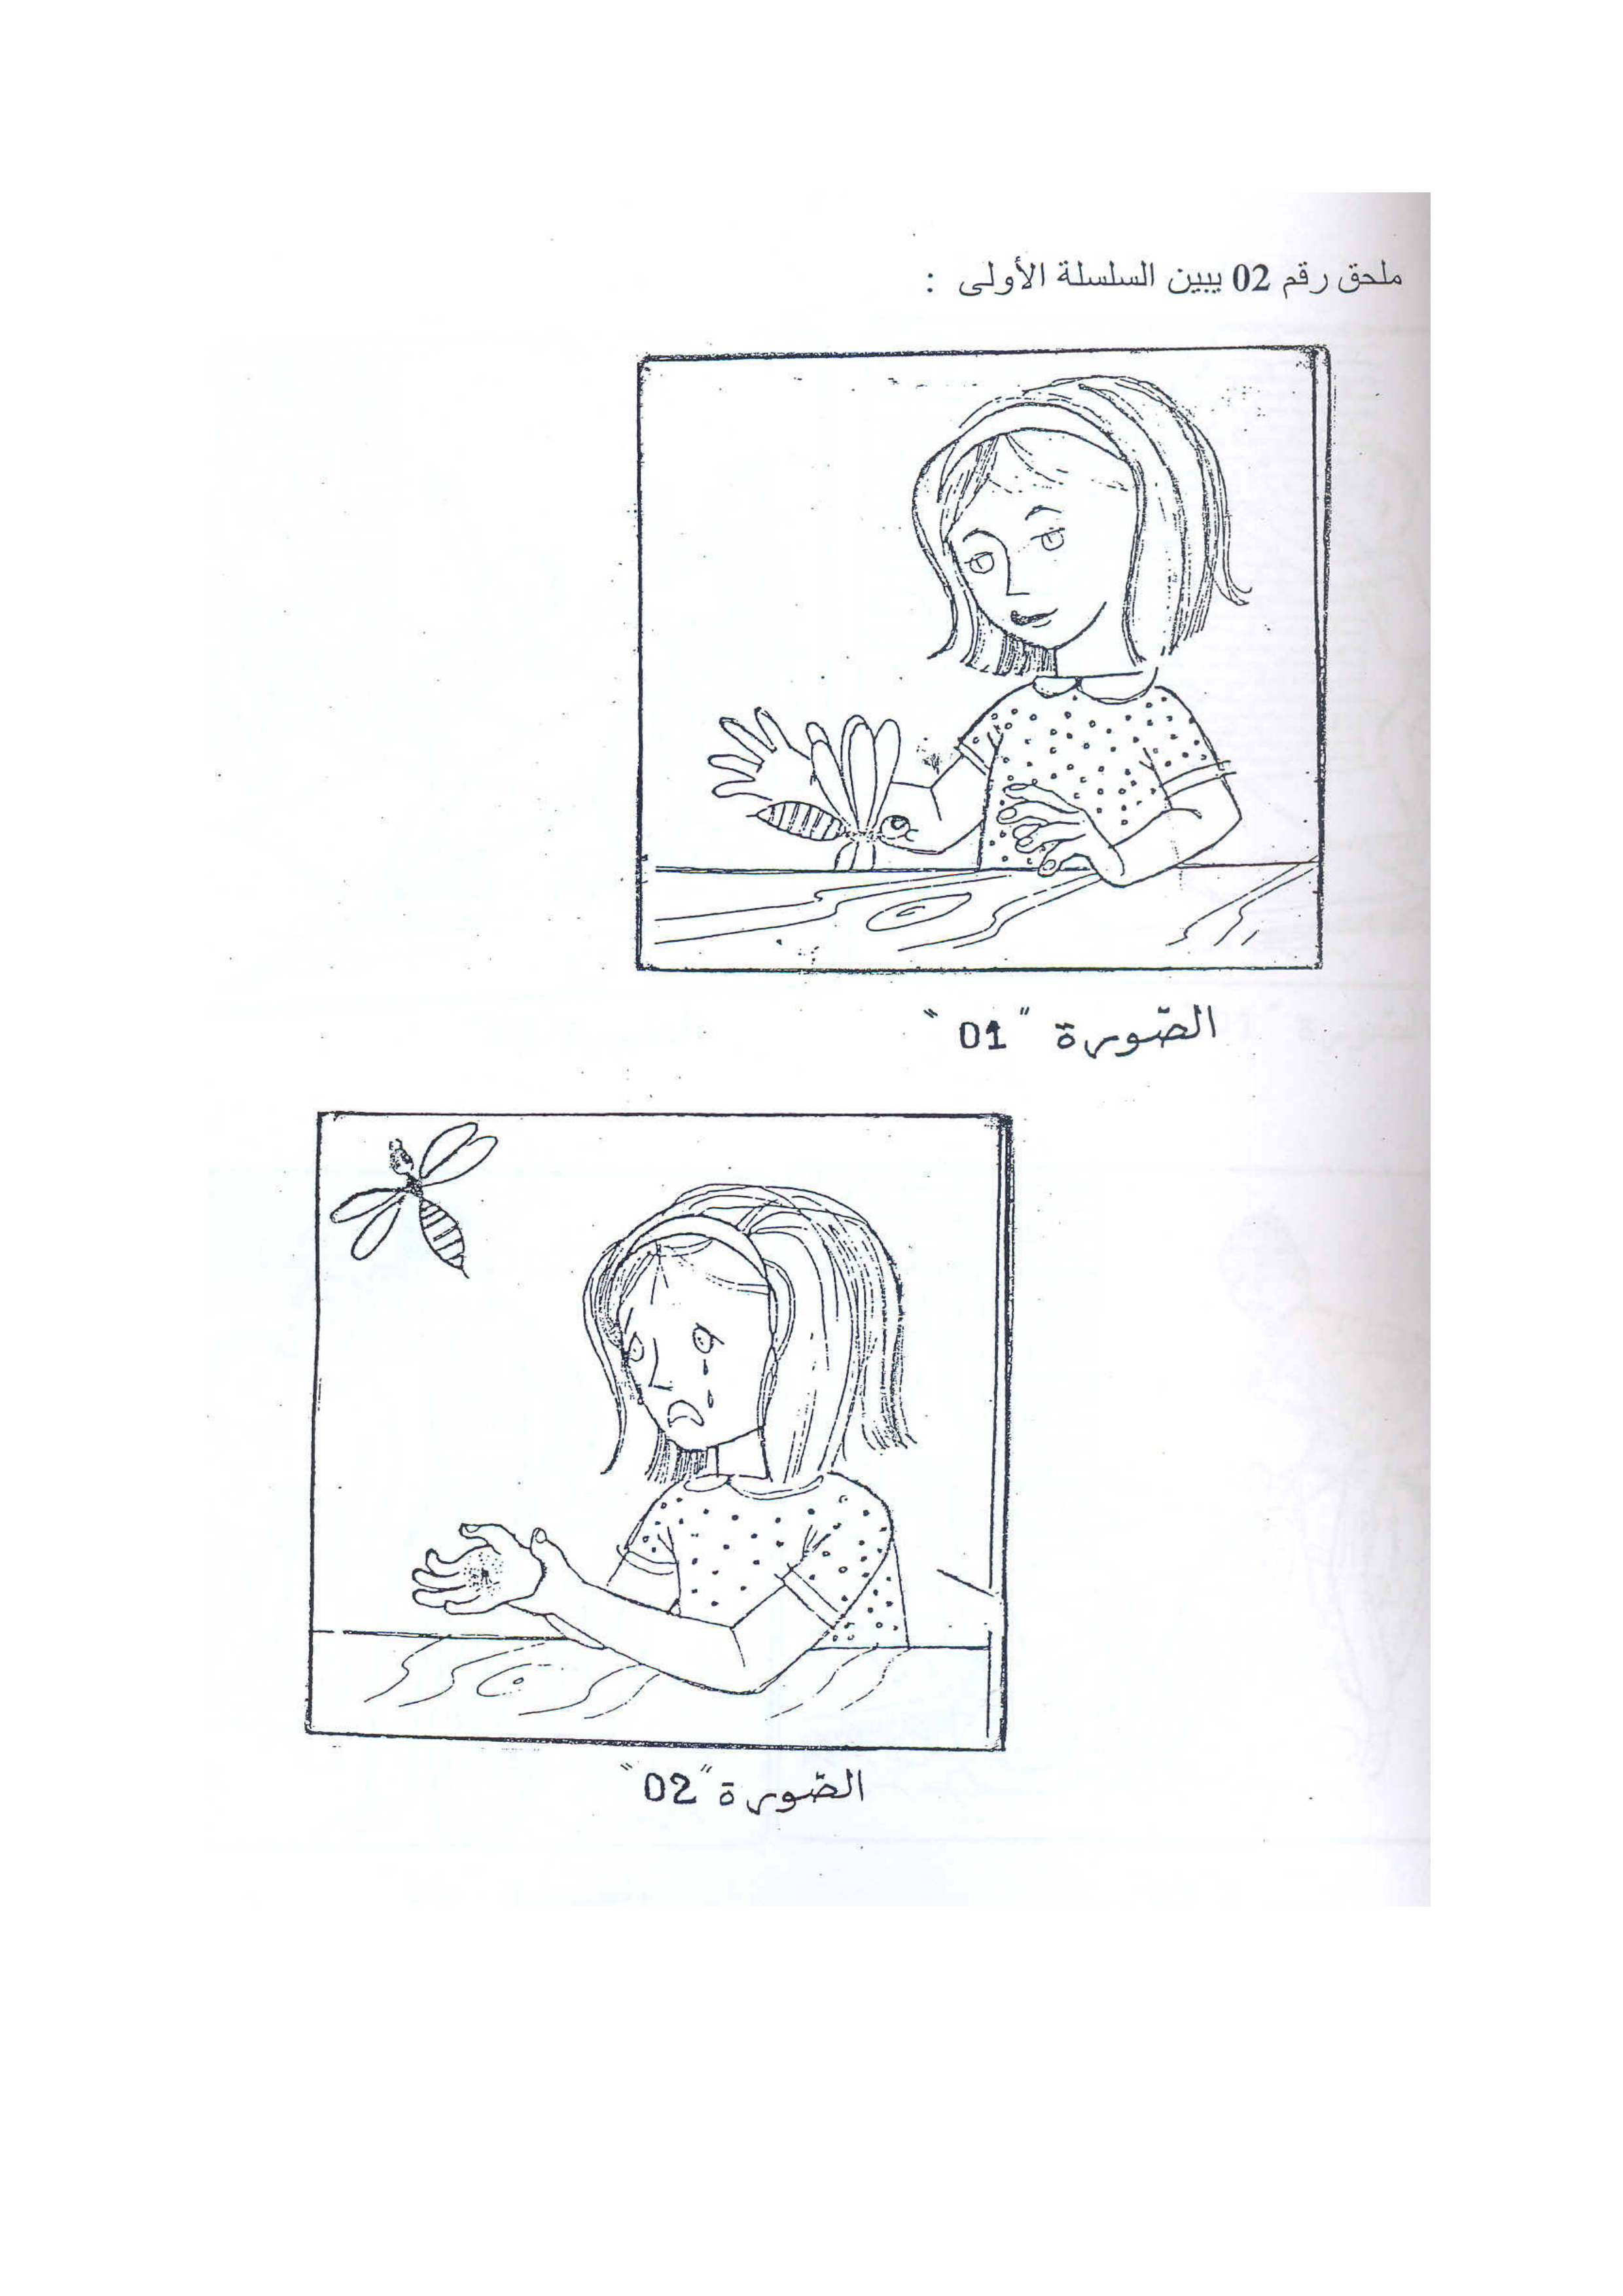 ملحق رقم 02 يبين السلسلة الأولى :
الصّورة "01"
الصّورة "02"